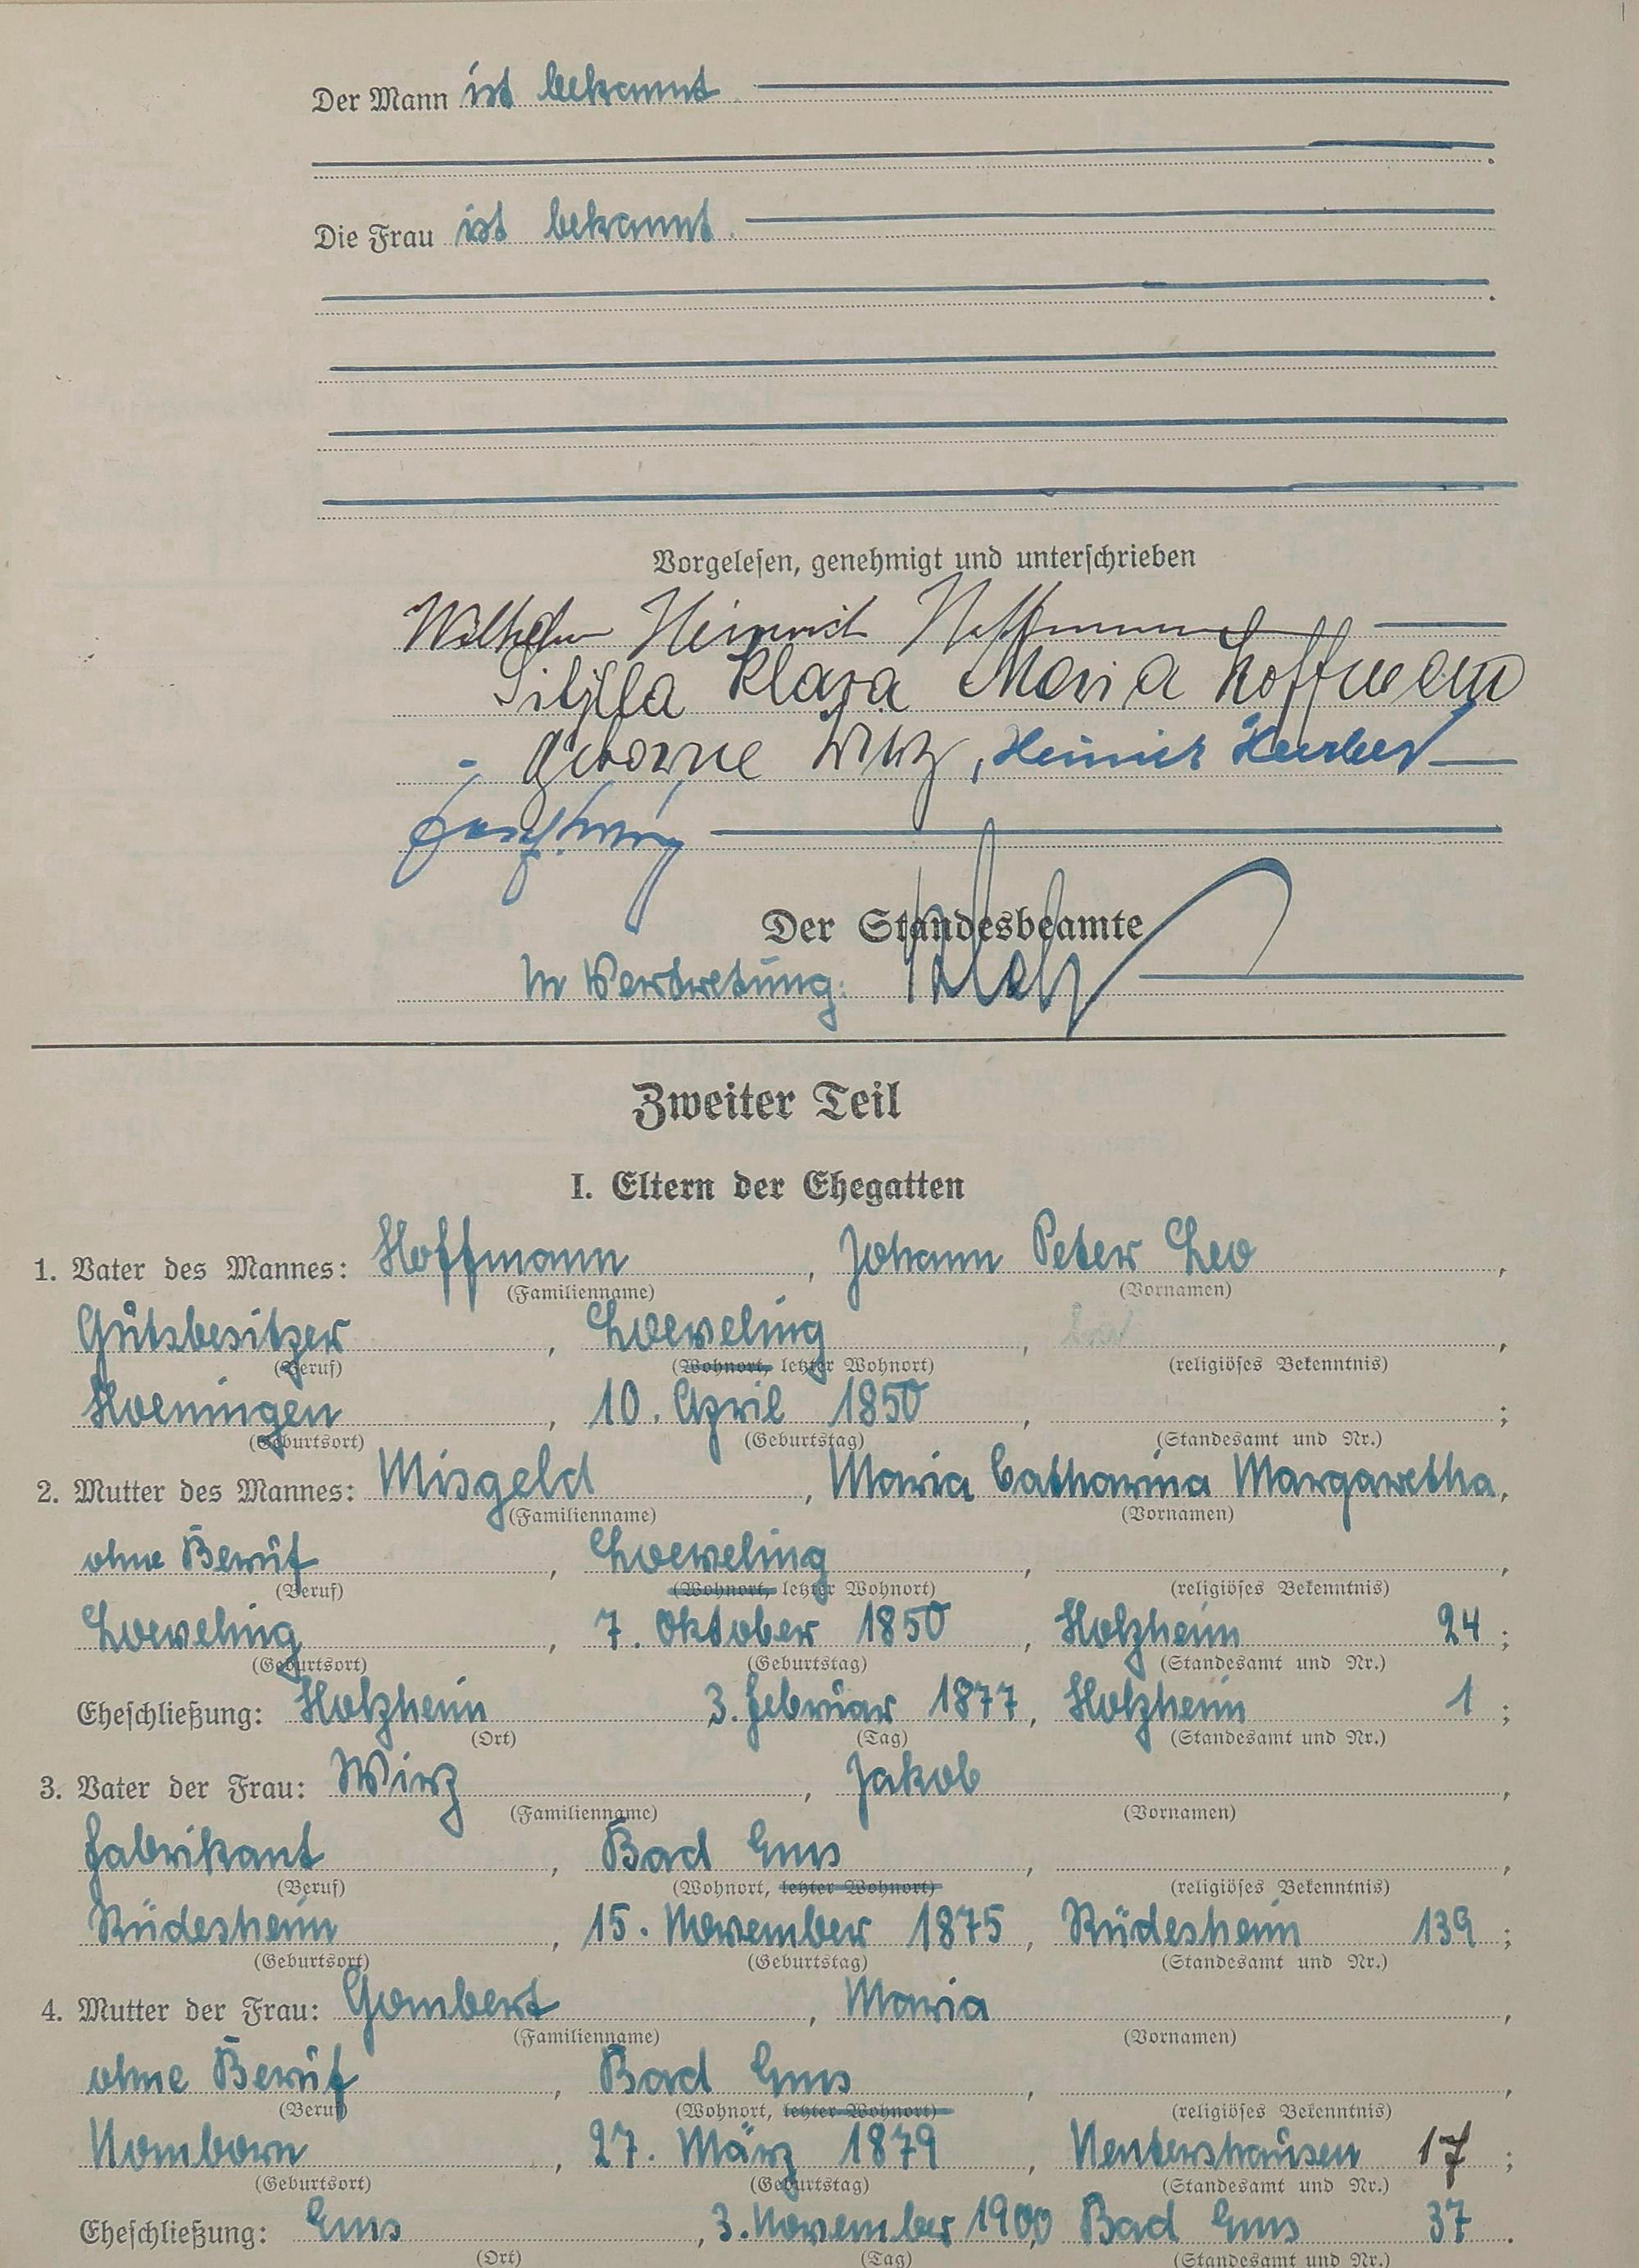 Der Mann ist bekannt
Die Frau ist bekannt.
Vorgelesen, genehmigt und unterschrieben
Wilhelm Heinrich Hoffmann
Sibylla Klara Maria Hoffmann
geborne Wirz, Heinrich
Der Standesbeamte
In Vertretung:
Zweiter Teil
I. Eltern der Ehegatten
1. Vater des Mannes: Hoffmann, Johann Peter Leo,
(Familienname) (Vornamen)
Gutsbesitzer, Loeveling,
(Beruf) (Wohnort, letzter Wohnort) (religiöses Bekenntnis)
Hoeningen, 10. April 1850, ;
(Geburtsort) (Geburtstag) (Standesamt und Nr.)
2. Mutter des Mannes: Misgeld, Maria Catharina Margaretha,
(Familienname) (Vornamen)
ohne Beruf, Loeveling, ,
(Beruf) (Wohnort, letzter Wohnort) (religiöses Bekenntnis)
Loeveling, 7. Oktober 1850, Holzheim 24;
(Geburtsort) (Geburtstag) (Standesamt und Nr.)
Eheschließung: Holzheim 3. Februar 1877, Holzheim 1;
(Ort) (Tag) (Standesamt und Nr.)
3. Vater der Frau: Wirz, Jakob,
(Familienname) (Vornamen)
Fabrikant, Bad Ems, ,
(Beruf) (Wohnort, letzter Wohnort) (religiöses Bekenntnis)
Rüdesheim, 15. November 1875, Rüdesheim 139;
(Geburtsort) (Geburtstag) (Standesamt und Nr.)
4. Mutter der Frau: Gombert, Maria,
(Familienname) (Vornamen)
ohne Beruf, Bad Ems, ,
(Beruf) (Wohnort, letzter Wohnort) (religiöses Bekenntnis)
Nomborn, 27. März 1879, Nentershausen 17;
(Geburtsort) (Geburtstag) (Standesamt und Nr.)
Eheschließung: Ems, 3. November 1900, Bad Ems 37.
(Ort) (Tag) (Standesamt und Nr.)